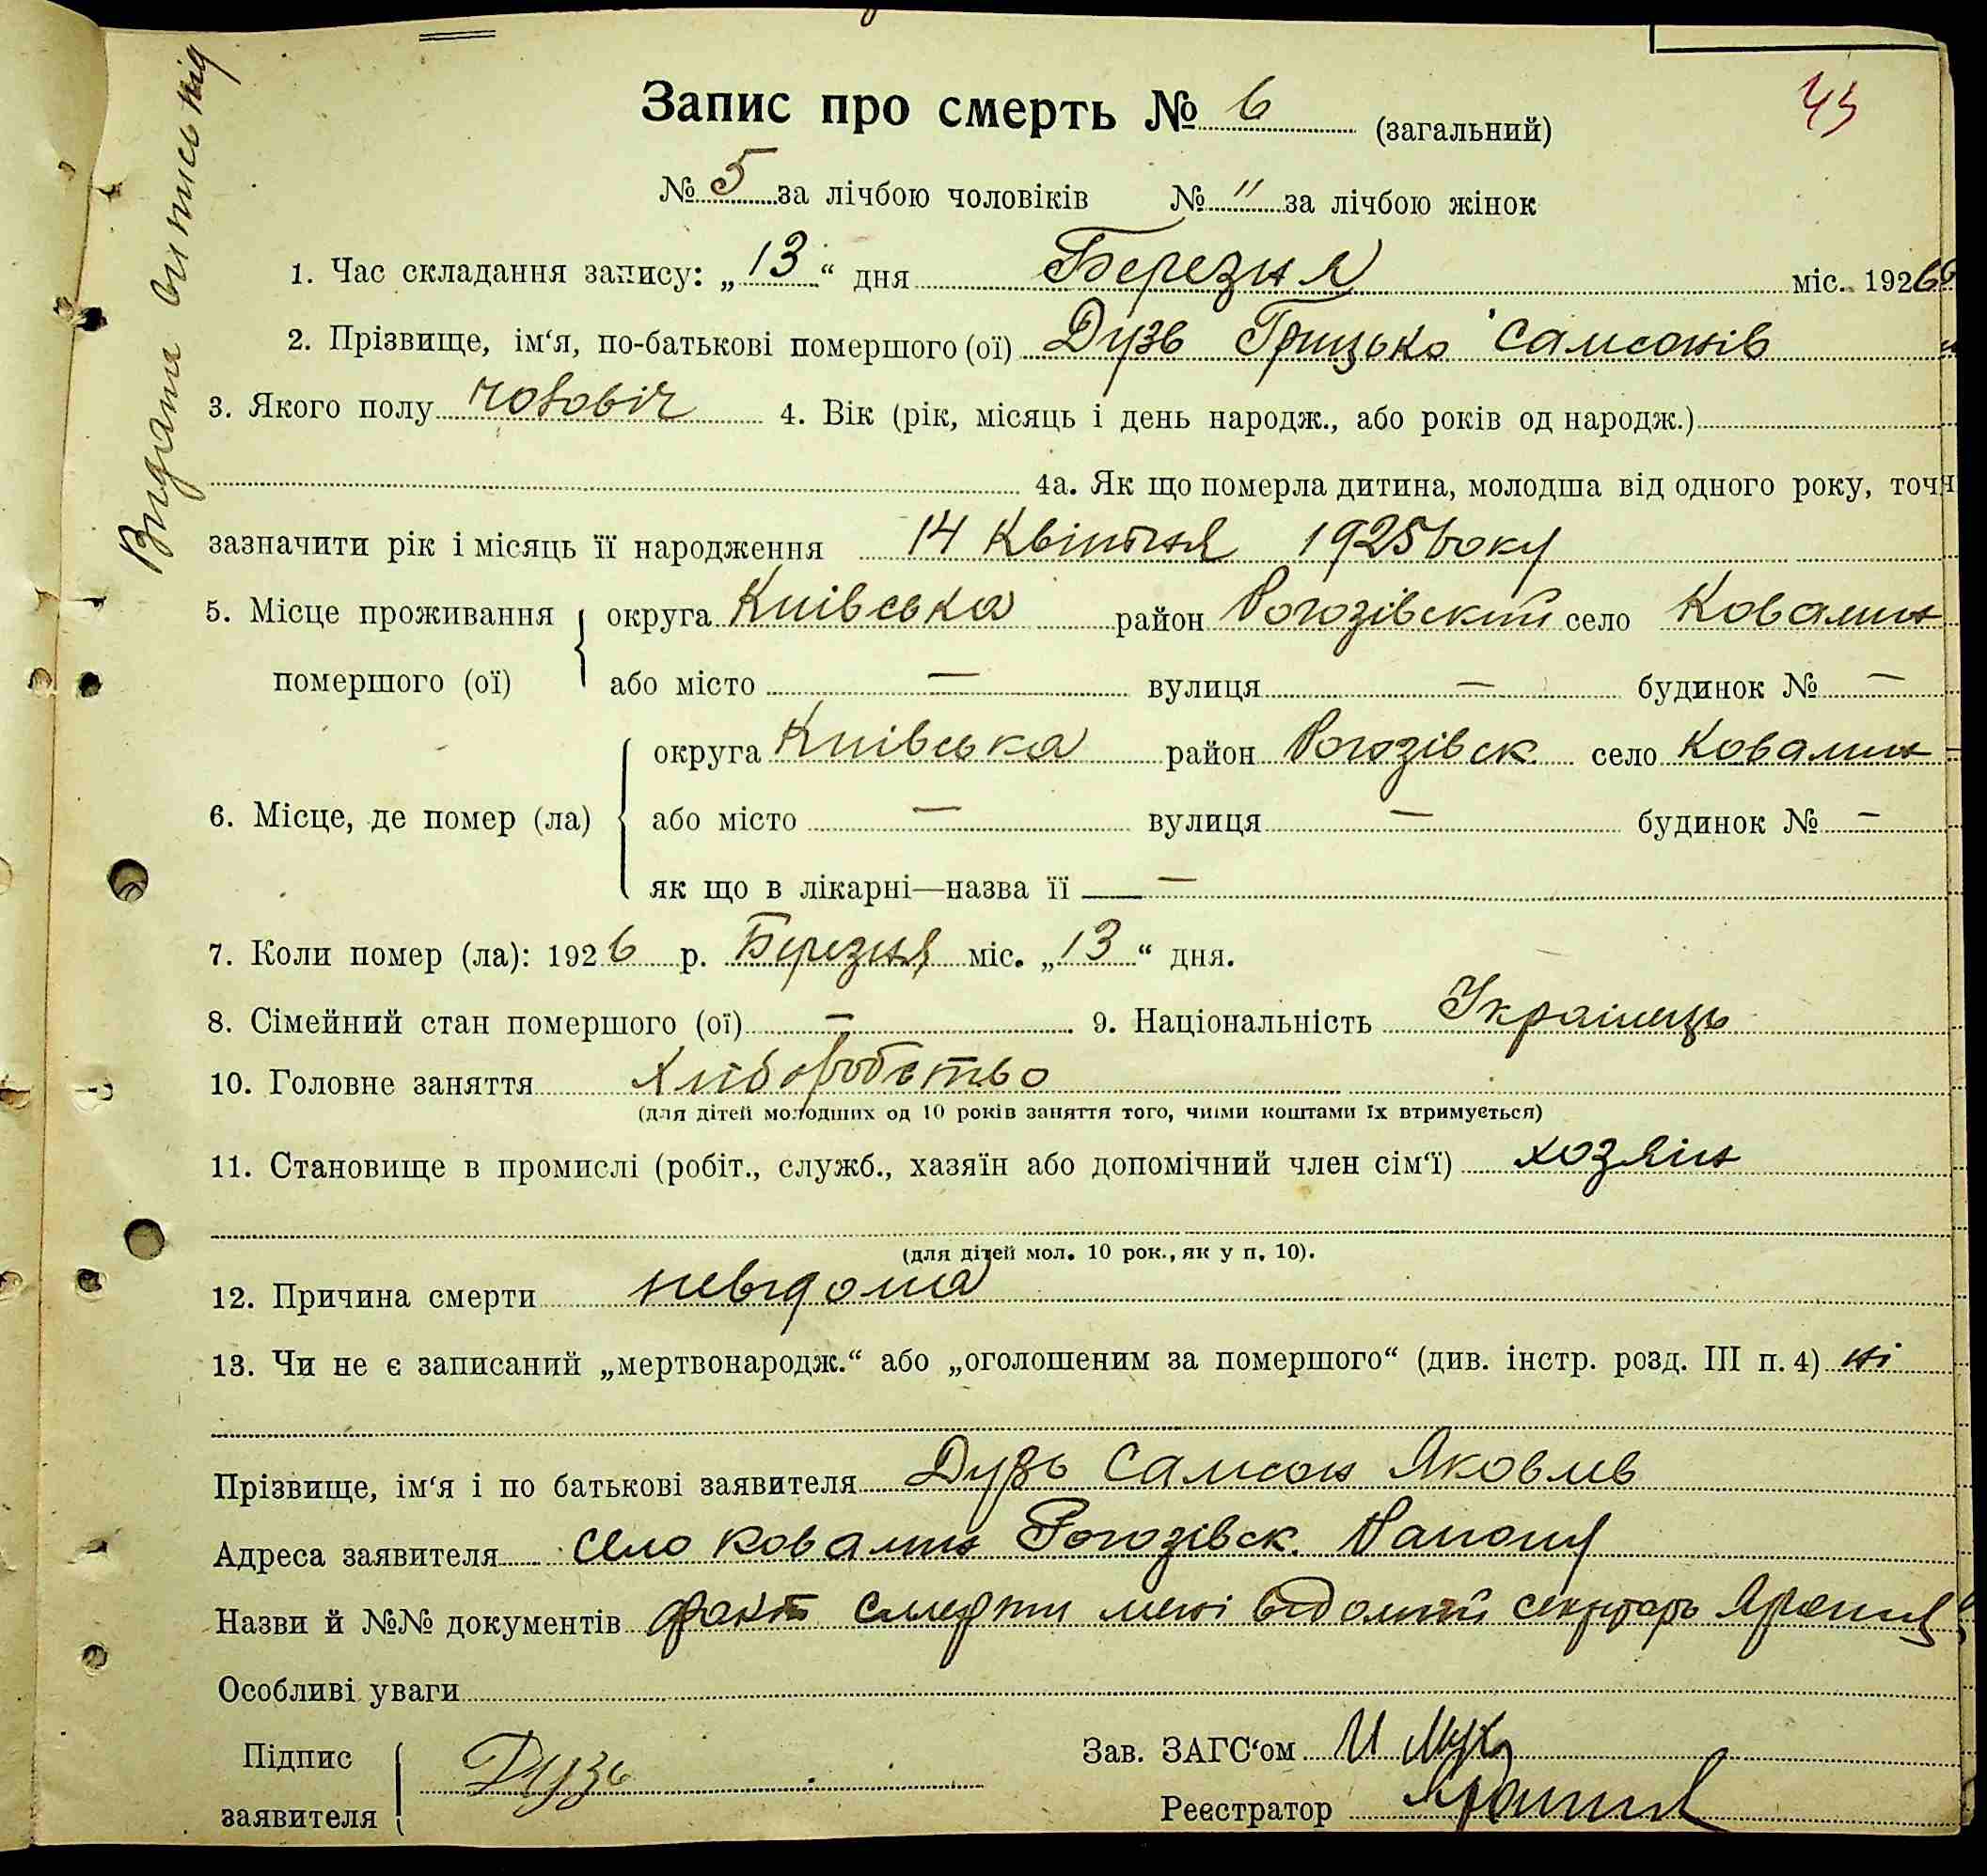 Видана виписька
43
Запис про смерть № 6 (загальний)
№ 5 за лічбою чоловіків № " за лічбою жінок
1. Час складання запису: „13“ дня Березня міс. 1926
2. Прізвище, ім‘я, по-батькові помершого (ої) Дузь Грицько Самсонів
3. Якого полу чоловіч 4. Вік (рік, місяць і день народж., або років од народж.)
4а. Як що померла дитина, молодша від одного року, точн
зазначити рік і місяць її народження 14 Квітня 1925 року
5. Місце проживання округа Київська район Рогозівский село Ковалин
помершого (ої) або місто — вулиця — будинок № —
округа Київська район Рогозівск. село Ковалин
6. Місце, де помер (ла) або місто — вулиця — будинок № —
як що в лікарні—назва її —
7. Коли помер (ла): 1926 р. Березня міс. „13“ дня.
8. Сімейний стан помершого (ої) — 9. Національність Українець
10. Головне заняття Хліборобство
(для дітей молодших од 10 років заняття того, чиїми коштами їх втримується)
11. Становище в промислі (робіт., служб., хазяїн або допомічний член сім‘ї) хозяін
(для дітей мол. 10 рок., як у п. 10).
12. Причина смерти невідома
13. Чи не є записаний „мертвонародж.“ або „оголошеним за помершого“ (див. інстр. розд. III п. 4) ні
Прізвище, ім‘я і по батькові заявителя Дузь Самсон Яковлів
Адреса заявителя село Ковалин Рогозівск. Району
Назви й №№ документів факт смерти мені відомий секретарь
Особливі уваги
Підпис Дузь Зав. ЗАГС‘ом
заявителя Реєстратор